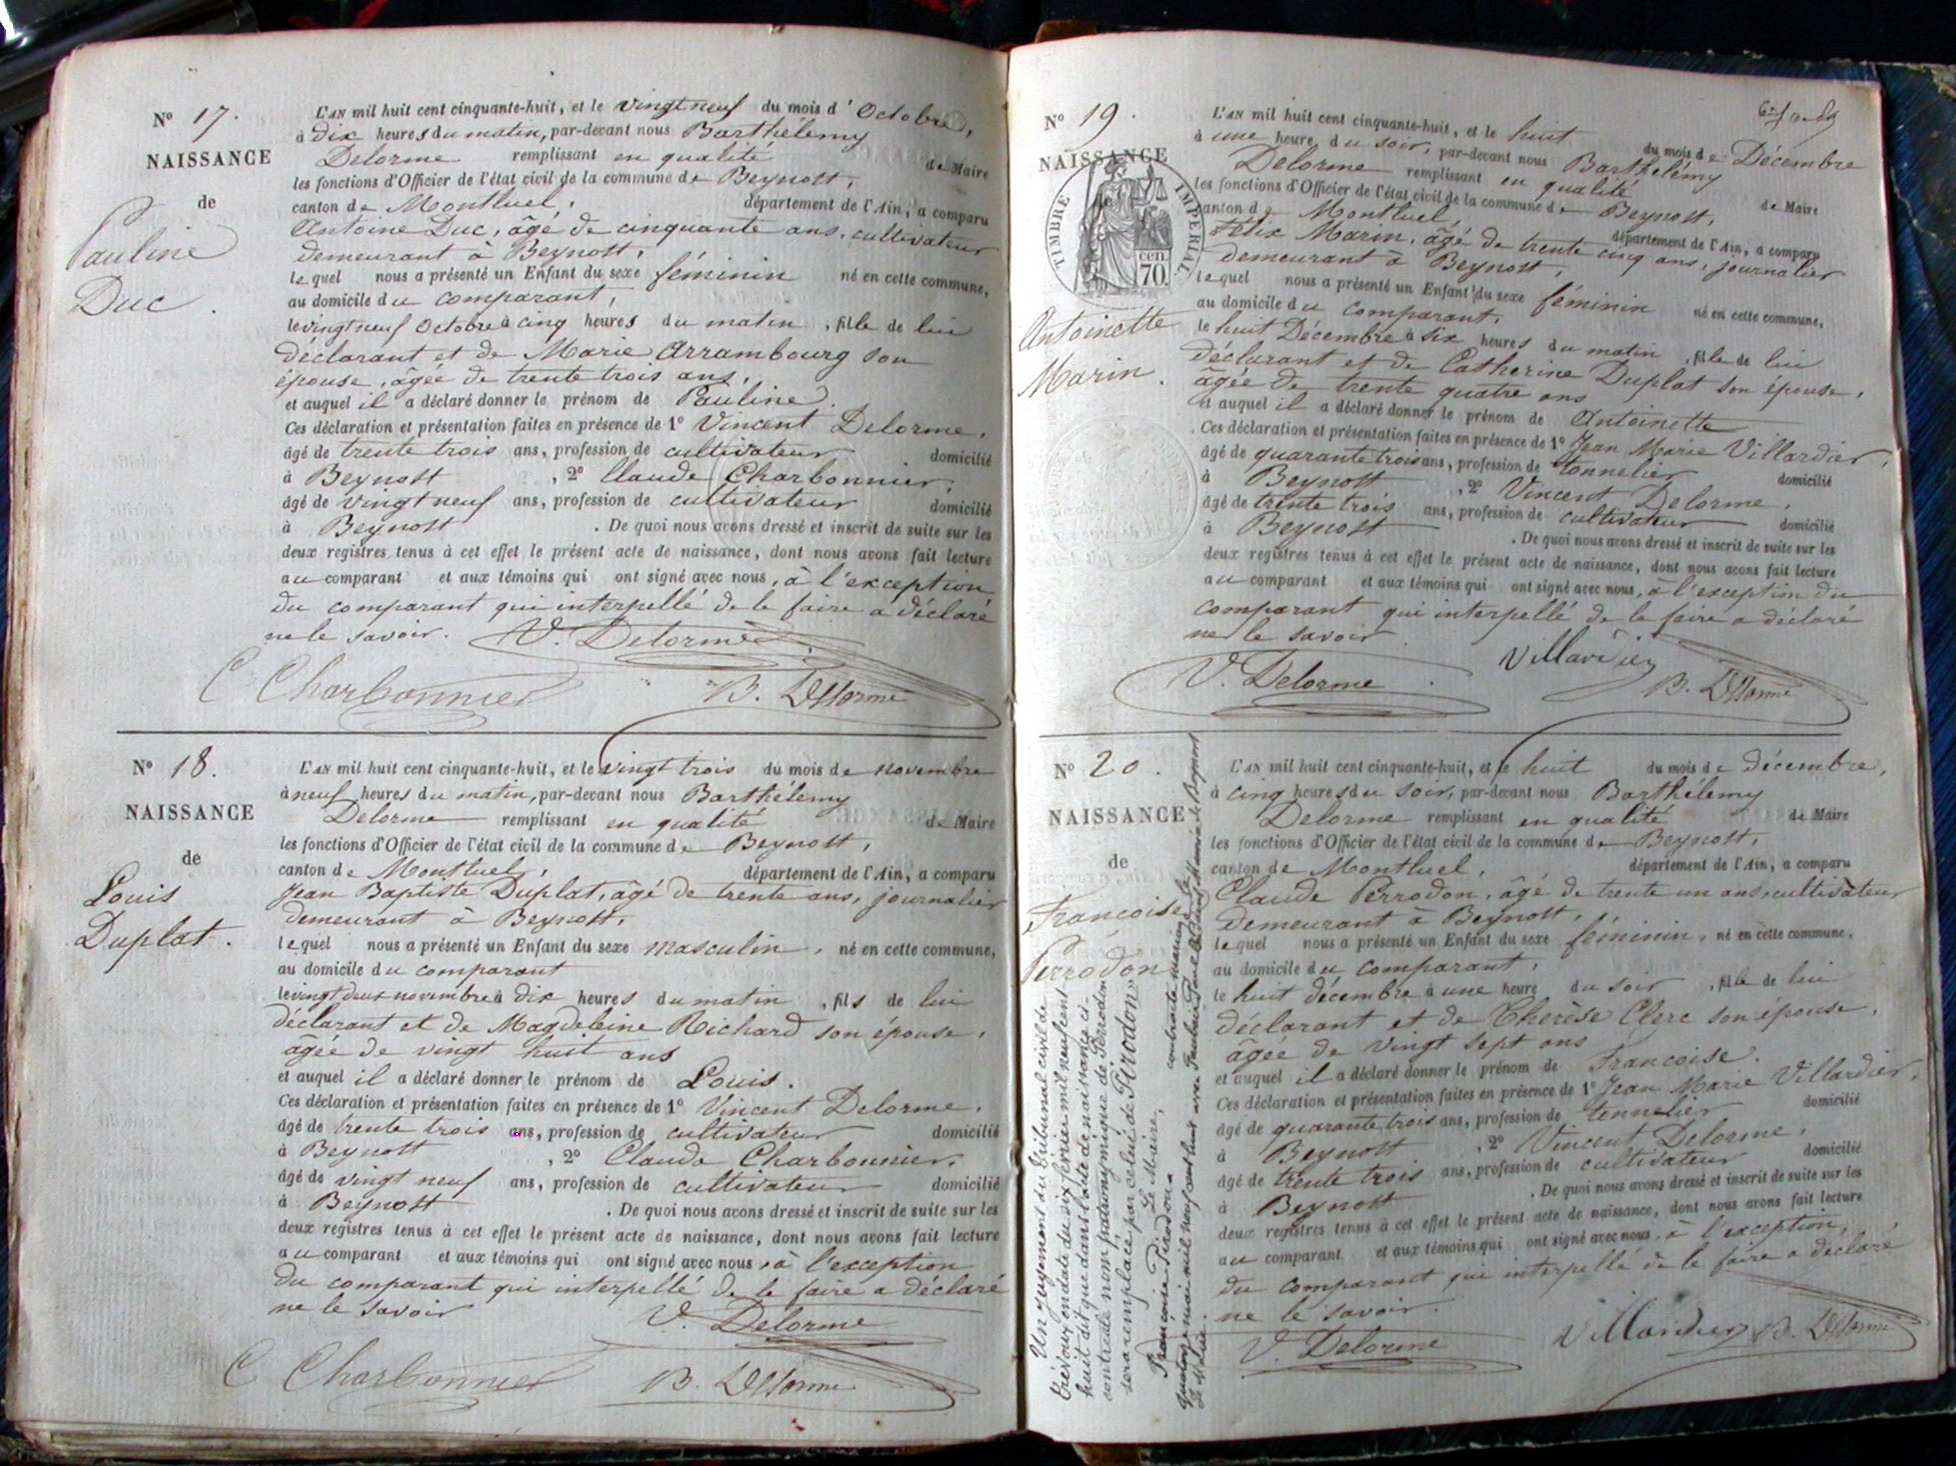 N° 17.
NAISSANCE
de
Pauline
Duc.
L'AN mil huit cent cinquante-huit, et le vingt neuf du mois d'Octobre,
à dix heures du matin, par-devant nous Barthélemy
Delorme remplissant en qualité de Maire
les fonctions d'Officier de l'état civil de la commune de Beynost,
canton de Montluel, département de l'Ain, a comparu
Antoine Duc, âgé de cinquante ans, cultivateur
demeurant à Beynost,
lequel nous a présenté un Enfant du sexe féminin né en cette commune,
au domicile du comparant,
le vingt neuf Octobre à cinq heures du matin, fille de lui
déclarant et de Marie Arrambourg son
épouse, âgée de trente trois ans,
et auquel il a déclaré donner le prénom de Pauline.
Ces déclaration et présentation faites en présence de 1° Vincent Delorme,
âgé de trente trois ans, profession de cultivateur domicilié
à Beynost, 2° Claude Charbonnier,
âgé de vingt neuf ans, profession de cultivateur domicilié
à Beynost. De quoi nous avons dressé et inscrit de suite sur les
deux registres tenus à cet effet le présent acte de naissance, dont nous avons fait lecture
au comparant et aux témoins qui ont signé avec nous, à l'exception
du comparant qui interpellé de le faire a déclaré
ne le savoir. V. Delorme
C Charbonnier B. Delorme
N° 18.
NAISSANCE
de
Louis
Duplat.
L'AN mil huit cent cinquante-huit, et le vingt trois du mois de novembre
à neuf heures du matin, par-devant nous Barthélemy
Delorme remplissant en qualité de Maire
les fonctions d'Officier de l'état civil de la commune de Beynost,
canton de Montluel, département de l'Ain, a comparu
Jean Baptiste Duplat, âgé de trente ans, journalier
demeurant à Beynost,
lequel nous a présenté un Enfant du sexe masculin, né en cette commune,
au domicile du comparant
le vingt deux novembre à dix heures du matin, fils de lui
déclarant et de Magdeleine Richard son épouse,
âgée de vingt huit ans
et auquel il a déclaré donner le prénom de Louis.
Ces déclaration et présentation faites en présence de 1° Vincent Delorme,
âgé de trente trois ans, profession de cultivateur domicilié
à Beynost, 2° Claude Charbonnier,
âgé de vingt neuf ans, profession de cultivateur domicilié
à Beynost. De quoi nous avons dressé et inscrit de suite sur les
deux registres tenus à cet effet le présent acte de naissance, dont nous avons fait lecture
au comparant et aux témoins qui ont signé avec nous, à l'exception
du comparant qui interpellé de le faire a déclaré
ne le savoir V. Delorme
C Charbonnier B. Delorme
N° 19.
NAISSANCE
de
TIMBRE IMPERIAL
70 cen.
Antoinette
Marin.
L'AN mil huit cent cinquante-huit, et le huit du mois de Décembre
à une heure du soir, par-devant nous Barthélemy
Delorme remplissant en qualité de Maire
les fonctions d'Officier de l'état civil de la commune de Beynost,
canton de Montluel, département de l'Ain, a comparu
Félix Marin, âgé de trente cinq ans, journalier
demeurant à Beynost,
lequel nous a présenté un Enfant du sexe féminin né en cette commune,
au domicile du comparant,
le huit Décembre à six heures du matin, fille de lui
déclarant et de Catherine Duplat son épouse,
âgée de trente quatre ans
et auquel il a déclaré donner le prénom de Antoinette
Ces déclaration et présentation faites en présence de 1° Jean Marie Villardier,
âgé de quarante trois ans, profession de tonnelier domicilié
à Beynost, 2° Vincent Delorme,
âgé de trente trois ans, profession de cultivateur domicilié
à Beynost. De quoi nous avons dressé et inscrit de suite sur les
deux registres tenus à cet effet le présent acte de naissance, dont nous avons fait lecture
au comparant et aux témoins qui ont signé avec nous, à l'exception du
comparant qui interpellé de le faire a déclaré
ne le savoir
Villardier
V. Delorme B. Delorme
N° 20.
NAISSANCE
de
Françoise
Perrodon
L'AN mil huit cent cinquante-huit, et le huit du mois de décembre,
à cinq heures du soir, par-devant nous Barthélemy
Delorme remplissant en qualité de Maire
les fonctions d'Officier de l'état civil de la commune de Beynost,
canton de Montluel, département de l'Ain, a comparu
Claude Perrodon, âgé de trente un ans, cultivateur
demeurant à Beynost,
lequel nous a présenté un Enfant du sexe féminin, né en cette commune,
au domicile du comparant,
le huit décembre à une heure du soir, fille de lui
déclarant et de Thérèse Clerc son épouse,
âgée de vingt sept ans
et auquel il a déclaré donner le prénom de Françoise.
Ces déclaration et présentation faites en présence de 1° Jean Marie Villardier,
âgé de quarante trois ans, profession de tonnelier domicilié
à Beynost, 2° Vincent Delorme,
âgé de trente trois ans, profession de cultivateur domicilié
à Beynost. De quoi nous avons dressé et inscrit de suite sur les
deux registres tenus à cet effet le présent acte de naissance, dont nous avons fait lecture
au comparant et aux témoins qui ont signé avec nous, à l'exception,
du comparant qui interpellé de le faire a déclaré
ne le savoir.
V. Delorme Villardier B. Delorme
Un jugement du Tribunal civil de
Trévoux en date du six février mil neuf cent
huit dit que dans l'acte de naissance ci-
contre le nom patronymique de Perrodon
sera remplacé par celui de "Pirodon"
Le Maire,
Françoise Pirodon a contracté mariage le
quatorze mai mil neuf cent huit avec à la Mairie de Beynost
Le Maire.